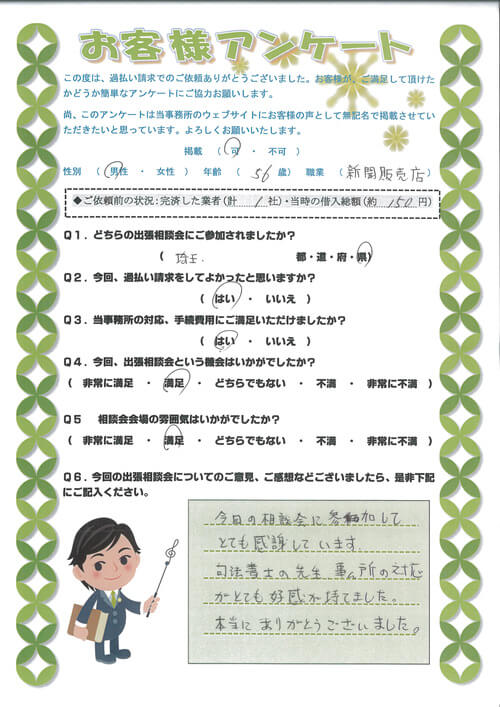 お客様アンケート
この度は、過払い請求でのご依頼ありがとうございました。お客様が、ご満足して頂けた
かどうか簡単なアンケートにご協力お願いします。
尚、このアンケートは当事務所のウェブサイトにお客様の声として無記名で掲載させてい
ただきたいと思っています。よろしくお願いいたします。
掲載 ( 可 ・ 不可 )
性別 ( 男性 ・ 女性 ) 年齢 ( 56 歳) 職業 ( 新聞販売店 )
◆ご依頼前の状況:完済した業者(計 1 社)・当時の借入総額(約 150 円)
Q1.どちらの出張相談会にご参加されましたか?
( 埼玉 都・道・府・県)
Q2.今回、過払い請求をしてよかったと思いますか?
( はい ・ いいえ )
Q3.当事務所の対応、手続費用にご満足いただけましたか?
( はい ・ いいえ )
Q4.今回、出張相談会という機会はいかがでしたか?
( 非常に満足 ・ 満足 ・ どちらでもない ・ 不満 ・ 非常に不満 )
Q5 相談会会場の雰囲気はいかがでしたか?
( 非常に満足 ・ 満足 ・ どちらでもない ・ 不満 ・ 非常に不満 )
Q6.今回の出張相談会についてのご意見、ご感想などございましたら、是非下記
にご記入ください。
今日の相談会に参加して
とても感謝しています。
司法書士の先生 事ム所の対応
がとても好感が持てました。
本当にありがとうございました。